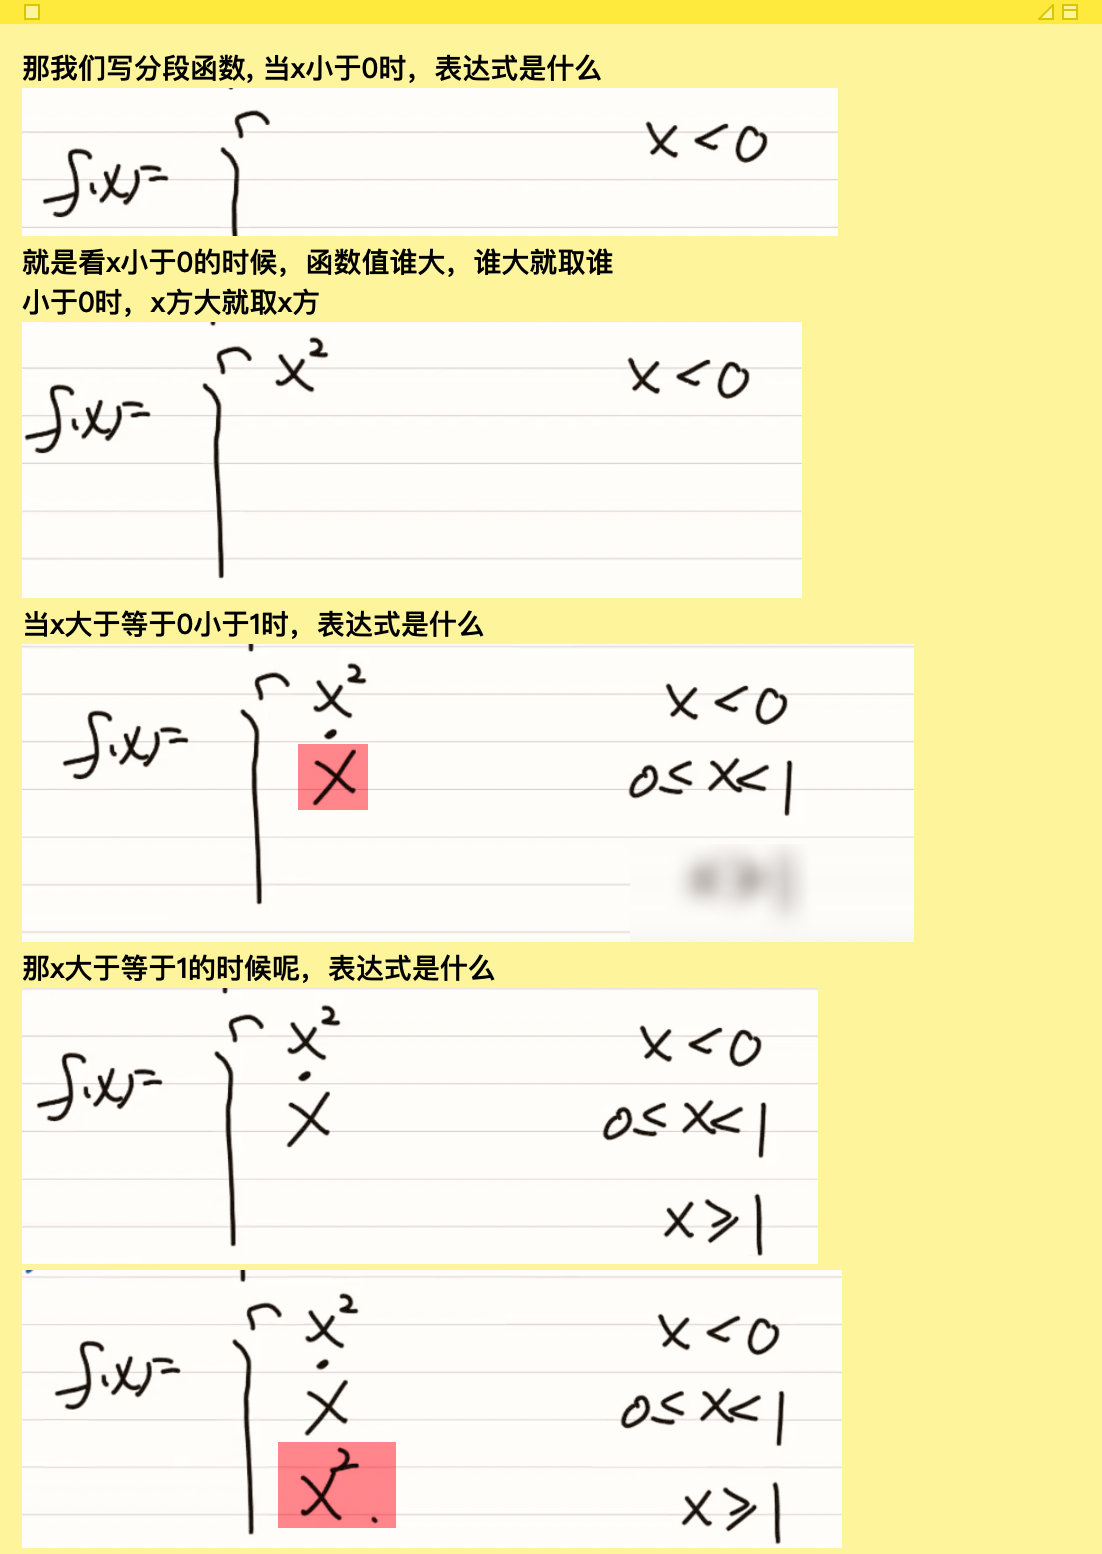 那我们写分段函数, 当x小于0时，表达式是什么
x<0
f(x)=
就是看x小于0的时候，函数值谁大，谁大就取谁
小于0时，x方大就取x方
x² x<0
f(x)=
当x大于等于0小于1时，表达式是什么
x² x<0
f(x)=
x 0≤x<1
那x大于等于1的时候呢，表达式是什么
x² x<0
f(x)=
x 0≤x<1
x≥1
x² x<0
f(x)=
x 0≤x<1
x². x≥1